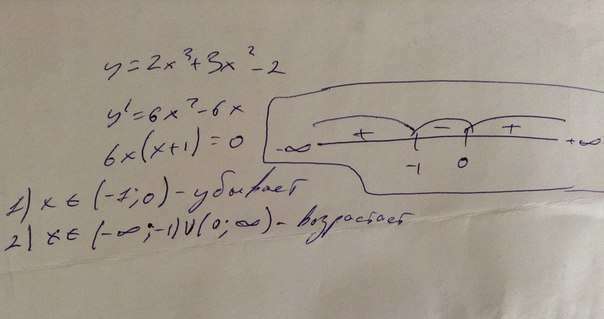 y=2x³+3x²-2
y'=6x²-6x
6x(x+1)=0
+ - +
-∞ -1 0 +∞
1) x∈(-1;0)-убывает
2) x∈(-∞;-1)∪(0;∞)-возрастает